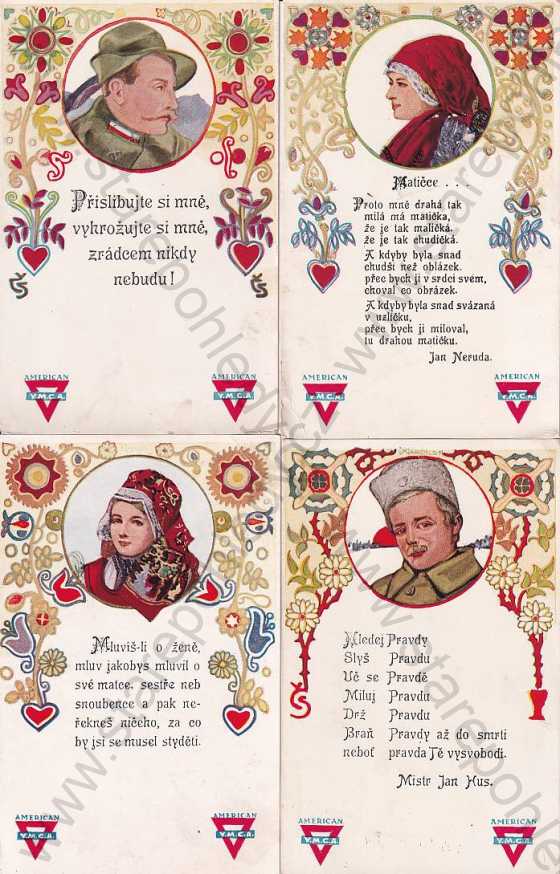 Přislibujte si mně,
vyhrožujte si mně,
zrádcem nikdy
nebudu!
Č Š
Č Š
AMERICAN
Y.M.C.A.
AMERICAN
Y.M.C.A.
Matičce . . .
Proto mně drahá tak
milá má matička,
že je tak maličká.
že je tak chudičká.
A kdyby byla snad
chudší než oblázek.
přec bych ji v srdci svém,
choval co obrázek.
A kdyby byla snad svázaná
v uzlíčku.
přec bych ji miloval,
tu drahou matičku.
Jan Neruda.
AMERICAN
Y.M.C.A.
AMERICAN
Y.M.C.A.
Mluvíš-li o ženě,
mluv jakobys mluvil o
své matce. sestře neb
snoubence a pak ne-
řekneš ničeho, za co
by jsi se musel styděti.
AMERICAN
Y.M.C.A.
AMERICAN
Y.M.C.A.
Hledej Pravdy
Slyš Pravdu
Uč se Pravdě
Miluj Pravdu
Drž Pravdu
Braň Pravdy až do smrti
neboť pravda Tě vysvobodí.
Mistr Jan Hus.
Š
AMERICAN
Y.M.C.A.
AMERICAN
Y.M.C.A.
www.starepohledy.cz